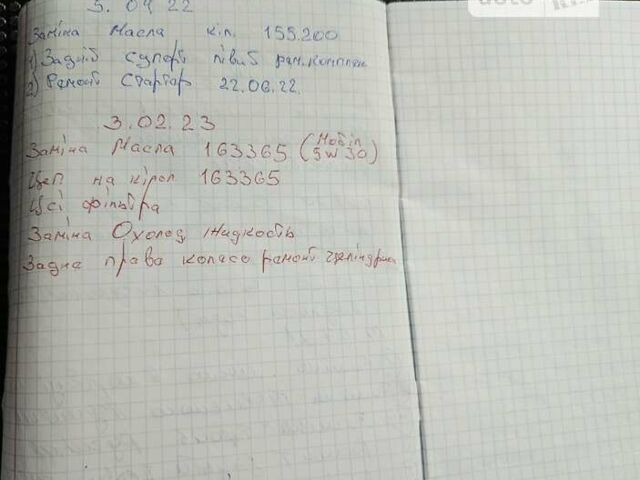 5.04.22
Заміна Масла к.п. 155.200
1) Задній супорт лівий рем.комплек
2) Ремонт Стартор 22.06.22.
3.02.23
Заміна Масла 163365 (Мобіл 5W30)
на 163365
Всі фільтра
Заміна Охолод Жидкость
Задна права колесо ремонт целіндрика